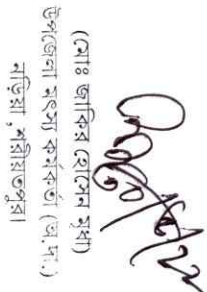 (মোঃ জাকির হোসেন মৃধা)
উপজেলা মৎস্য কর্মকর্তা (অ.দা.)
নড়িয়া, শরীয়তপুর।